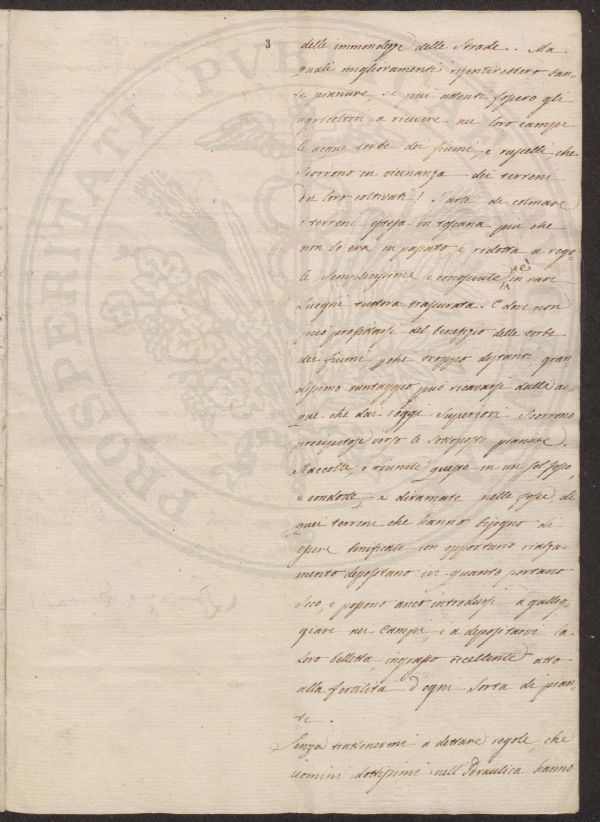 3
delle immondezze delle Strade. Ma
quali miglioramenti risentirebbero tan-
te pianure, se più attenti fossero gli
agricoltori a ricevere nei loro campi
le acque torbe dei fiumi, e ruscelli che
scorrono in vicinanza dei terreni
da loro coltivati! L'arte di colmare
i terreni estesa in toscana più che
non lo era in passato è ridotta a rego-
le semplicissime e conosciute, ed è in vari
Luoghi tuttora trascurata. E dove non
può profittarsi del benefizio delle torbe
dei fiumi perche troppo distanti gran-
dissimo vantaggio può ricavarsi dalle ac-
que che dai Poggi superiori scorrono
precipitose verso le sottoposte pianure.
Raccolte, e riunite queste in un sol fosso,
e condotte, e diramate nelle fosse di
quei terreni che hanno bisogno di
essere bonificati con opportuno rialza-
mento depositano ivi quanto portano
seco, e possono anco introdursi a galleg-
giare nei Campi, e a depositarvi la
loro belletta, ingrasso eccellente atto
alla fertilità d'ogni sorta di pian-
te.
Senza trattenermi a dettare regole, che
uomini dottissimi nell'Idraulica hanno
PROSPERITATI